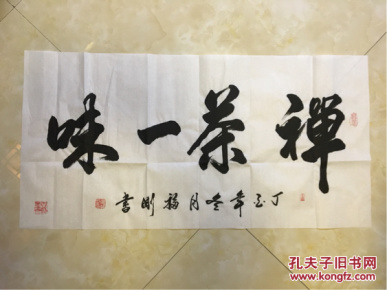 禪茶一味
丁酉年冬月福刚書
孔夫子旧书网
www.kongfz.com